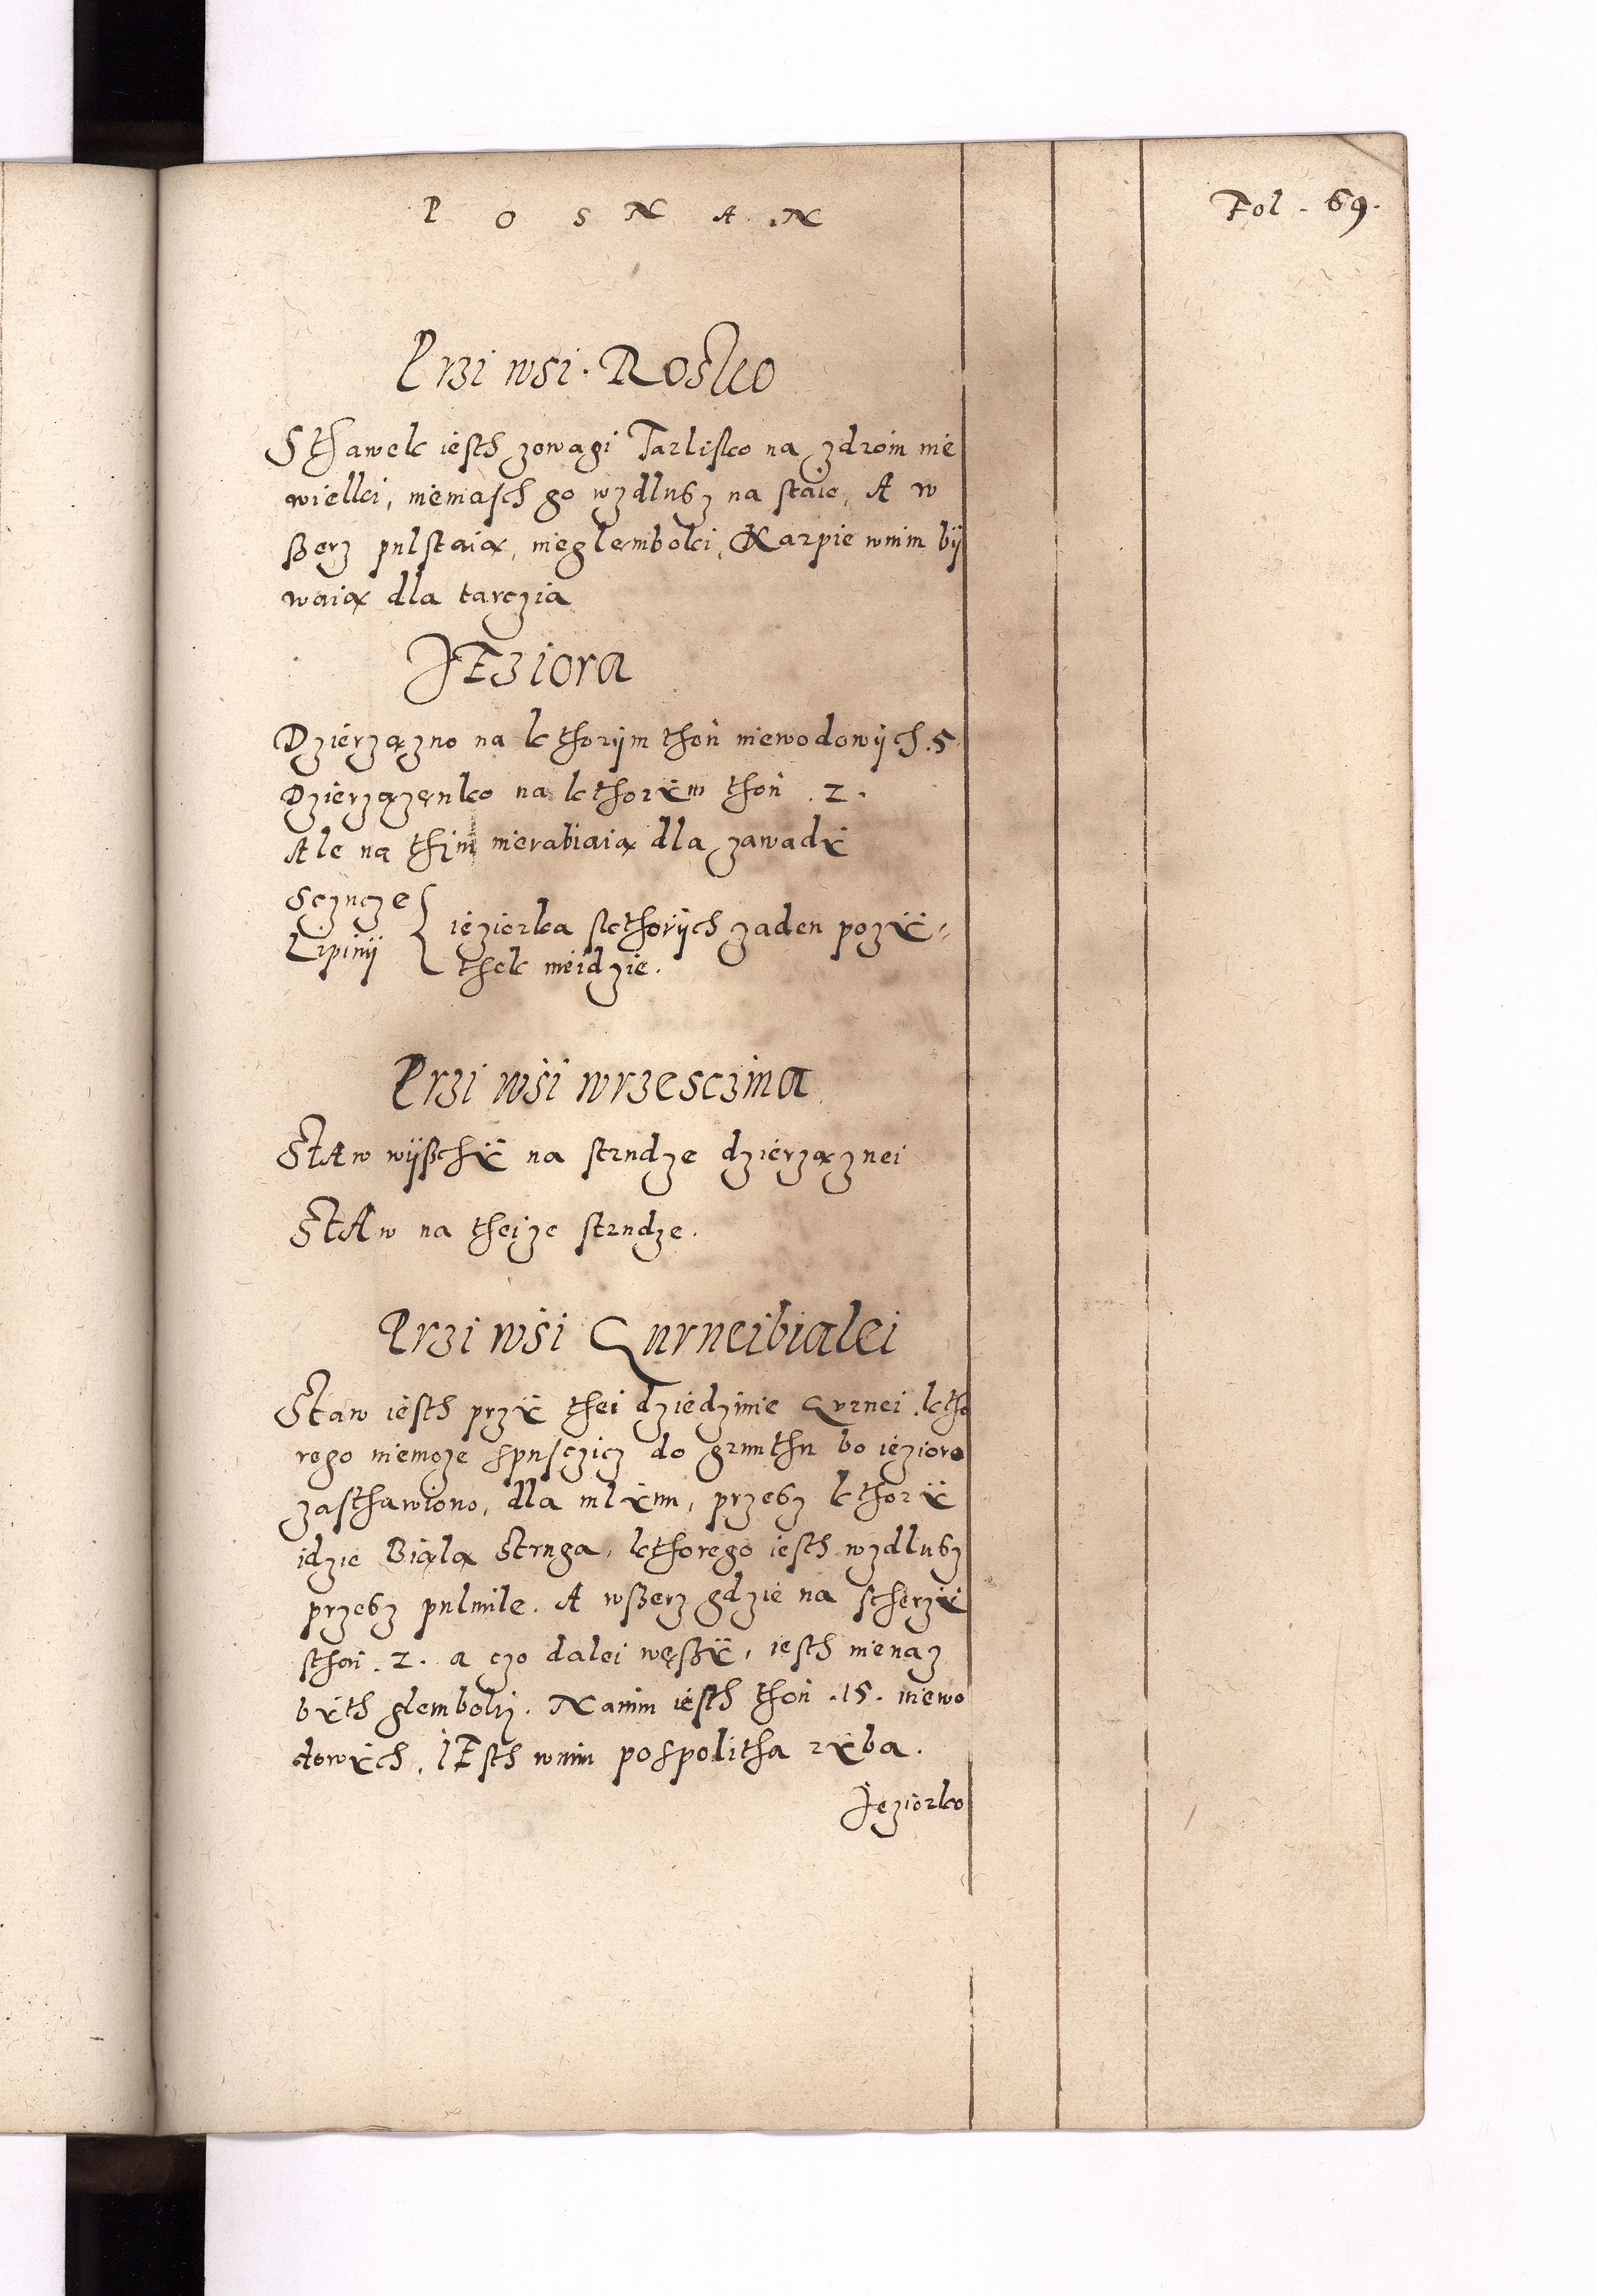 P O S N A N
Fol. 69.
Przi wsi. Rosko
Sthawek iesth zowagi Tarlisko na zdroin nie
wielki, niemasch go wzdlusz na staie, A w
szerz pulstaią, nieglemboki, Karpie wnim bÿ
waią dla tarczia
JEziora
Dzierzązno na kthorÿm thoń niewodowÿch. 5
Dzierzązęnko na kthorÿm thoń . 2 .
Ale na thim nierabiaią dla zawadÿ
Sczucze
Lipinÿ
ieziorka skthorÿch zaden pozÿ=
thek nieidzie.
Przi wsi wrzesczina
StAw wÿszchÿ na strudze dzierząznei
StAw na theize strudze.
Przi wsi Gurneibialei
Staw iesth przÿ thei dziedzinie Gurnei ktho
rego niemoze spusczicz do grunthu bo iezioro
zasthawiono, dla mlÿnu, przesz kthorÿ
idzie Biąla Struga, kthorego iesth wzdlusz
przesz pulmile. A wszerz gdzie na stherzÿ
sthoi . 2 . a czo dalei węszÿ, iesth nienaz
bÿth glemboki. Nanim iesth thoń . 15 . niewo
dowÿch. IEsth wnim pospolitha rÿba.
Jeziorko